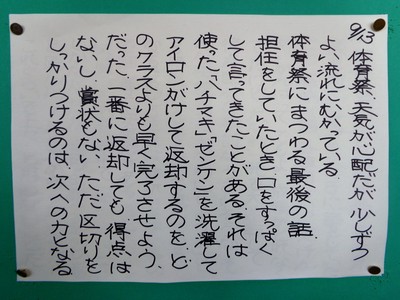 9/13 体育祭、天気が心配だが少しずつ
よい流れにむかっている。
体育祭にまつわる最後の話。
担任をしていたとき、口をすっぱく
して言ってきたことがある。それは
使った「ハチマキ」「ゼンケン」を洗濯して
アイロンがけして返却するのを、ど
のクラスよりも早く完了させよう、
だった。一番に返却しても得点は
ないし、賞状もない。ただ区切りを
しっかりつけるのは、次への力となる。